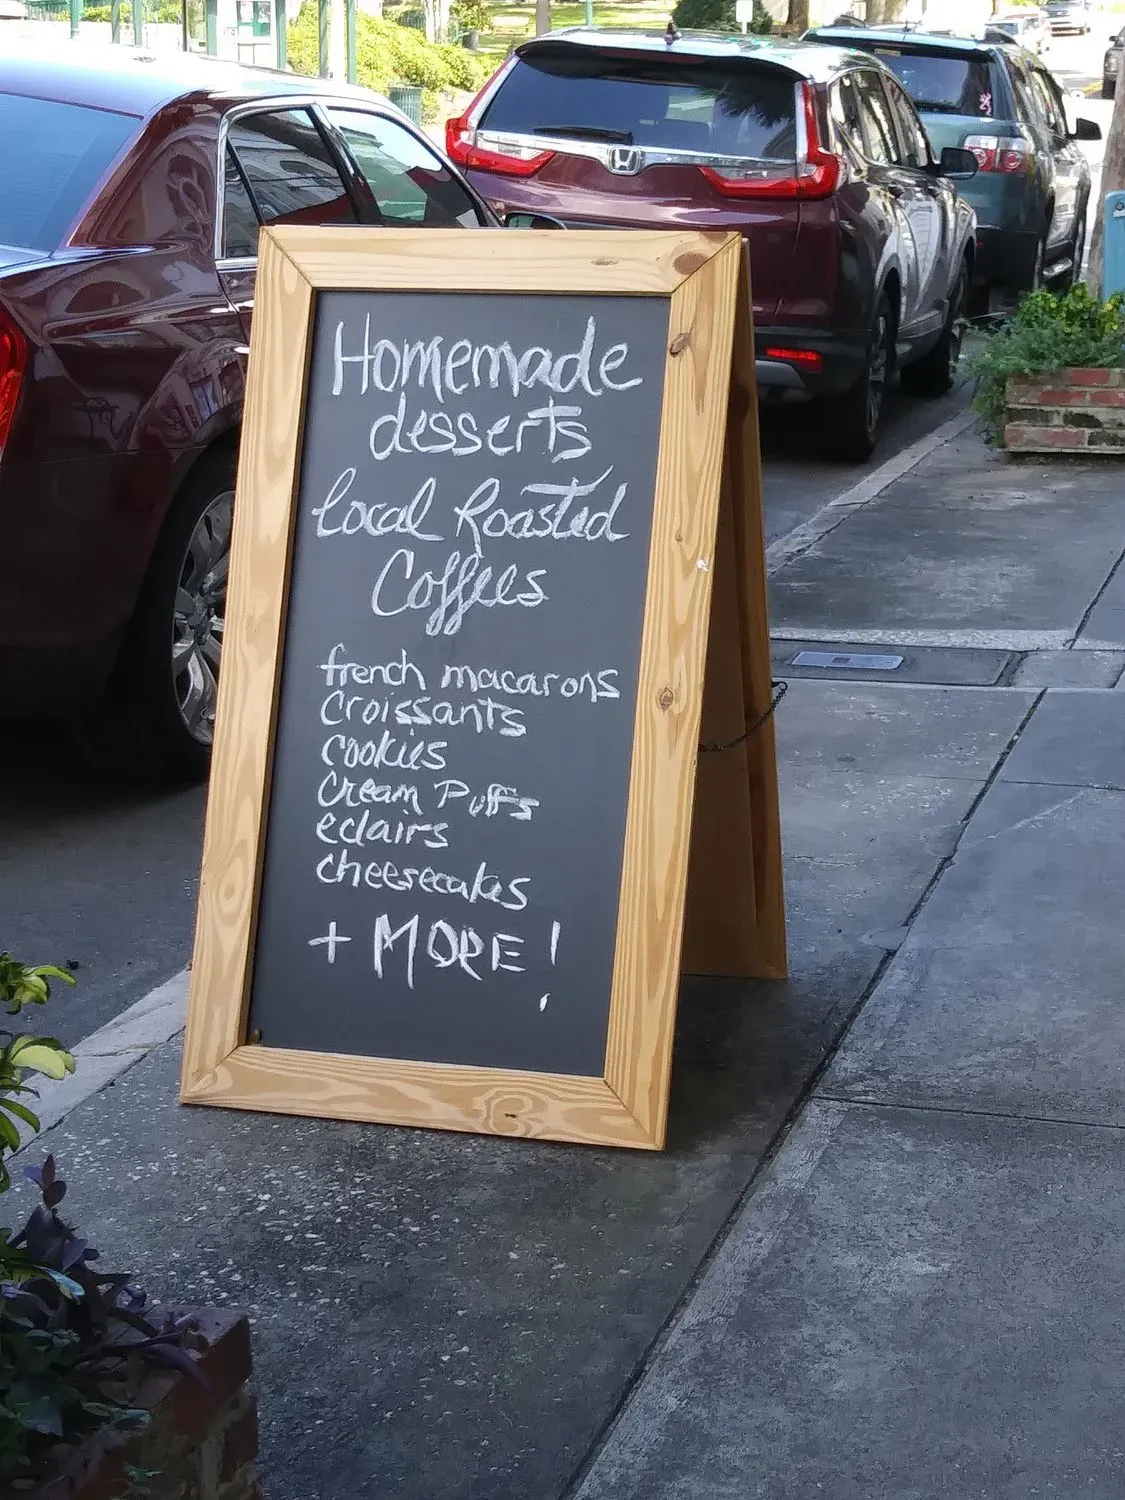 Homemade
desserts
local Roasted
Coffees
french macarons
Croissants
cookies
Cream Puffs
eclairs
cheesecakes
+ MORE!